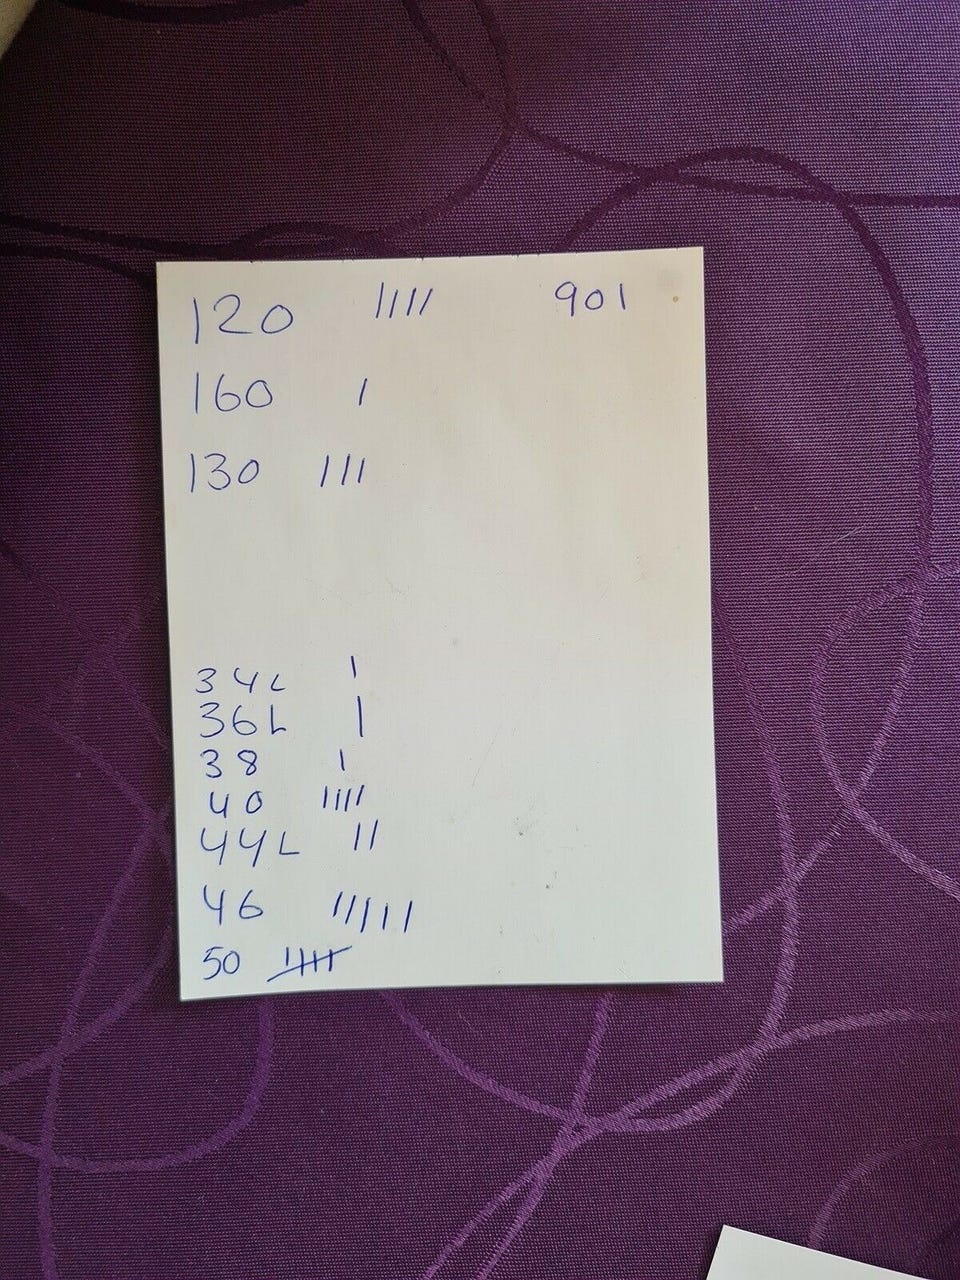 120 |||| 901
160 |
130 |||
34L |
36L |
38 |
40 ||||
44L ||
46 |||||
50 ~~||||~~